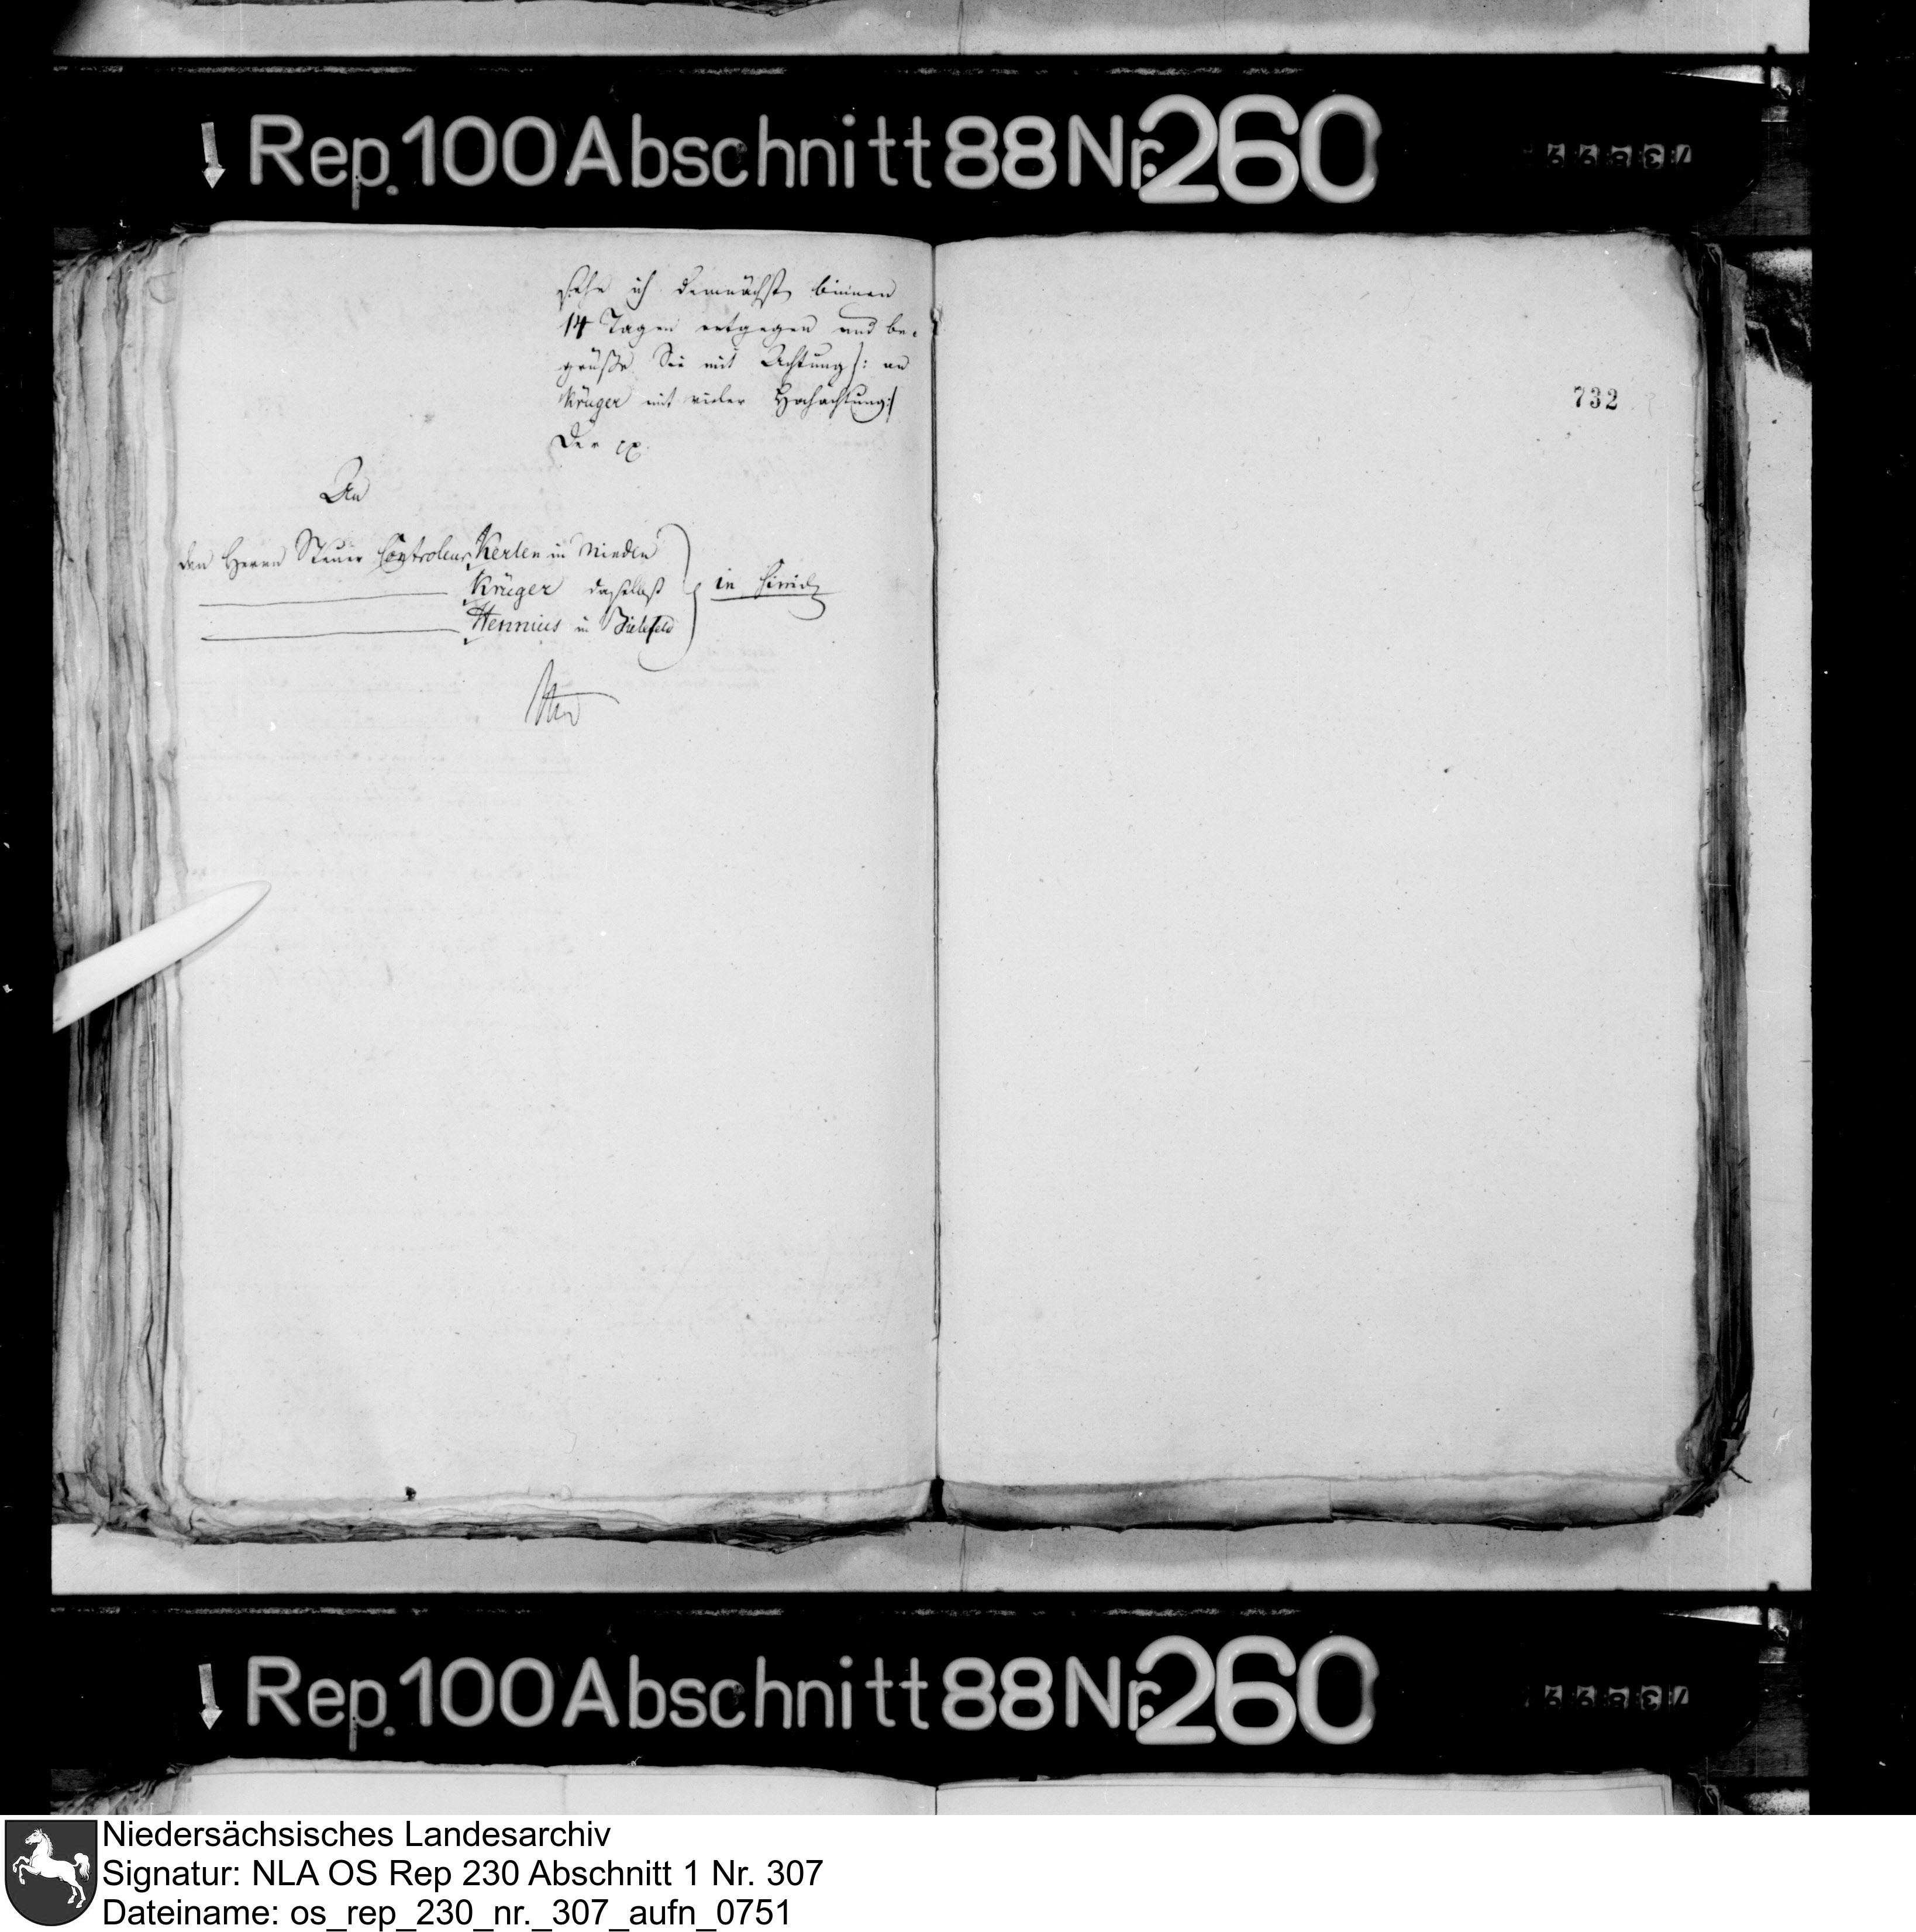 Rep. 100 Abschnitt 88 Nr. 260
73899
sehe ich demnächst binnen
14 Tagen entgegen und be-
grüße Sie mit Achtung /: an
Krüger mit vieler Hochachtung :/
Der pp.
An
den Herrn Steuer Controleur Kerlen in Minden
Krüger daselbst
Hennius in Bielefeld
in
732
Rep. 100 Abschnitt 88 Nr. 260
73899
Niedersächsisches Landesarchiv
Signatur: NLA OS Rep 230 Abschnitt 1 Nr. 307
Dateiname: os_rep_230_nr._307_aufn_0751